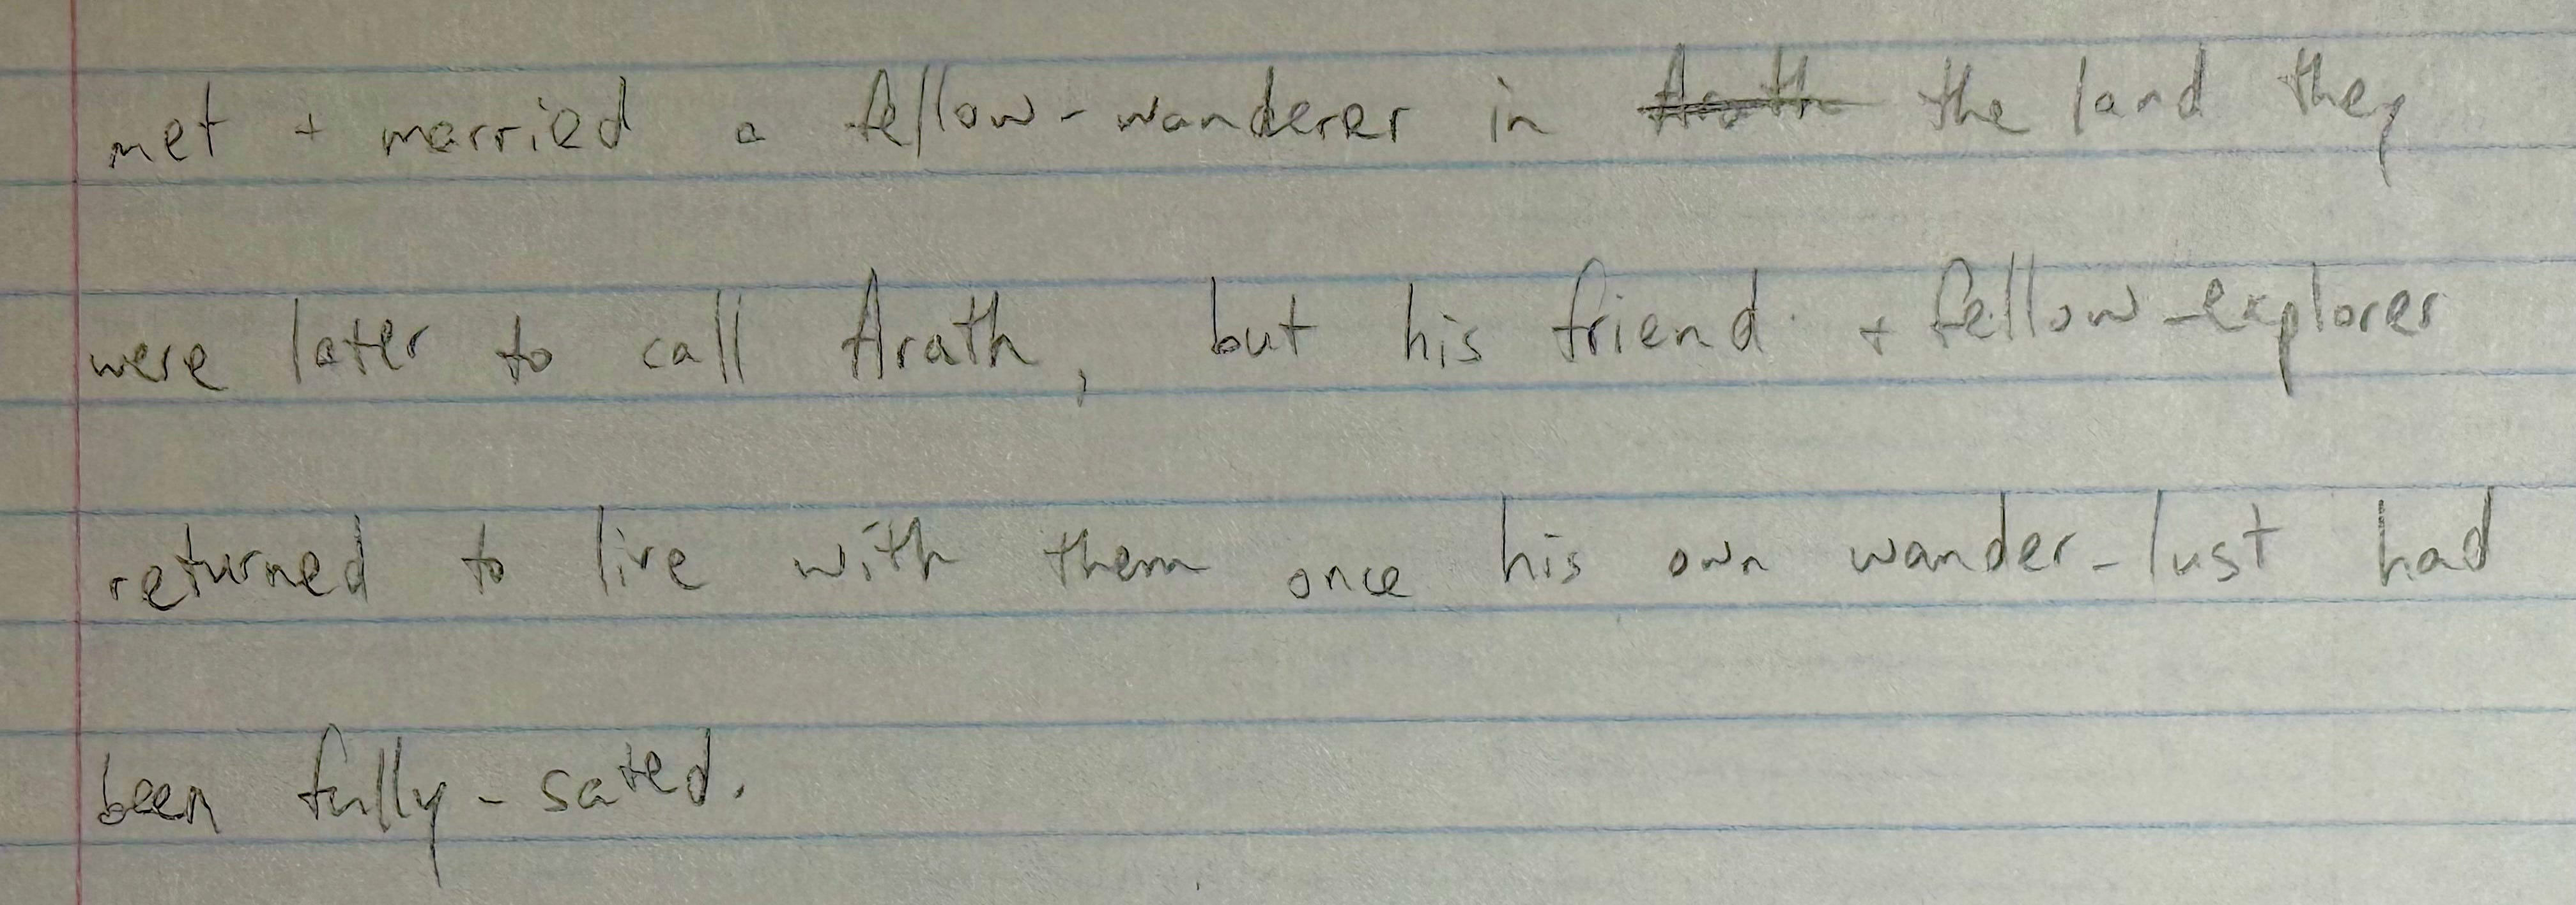 met + married a fellow-wanderer in Arath the land they
were later to call Arath, but his friend + fellow-explorer
returned to live with them once his own wander-lust had
been fully-sated.